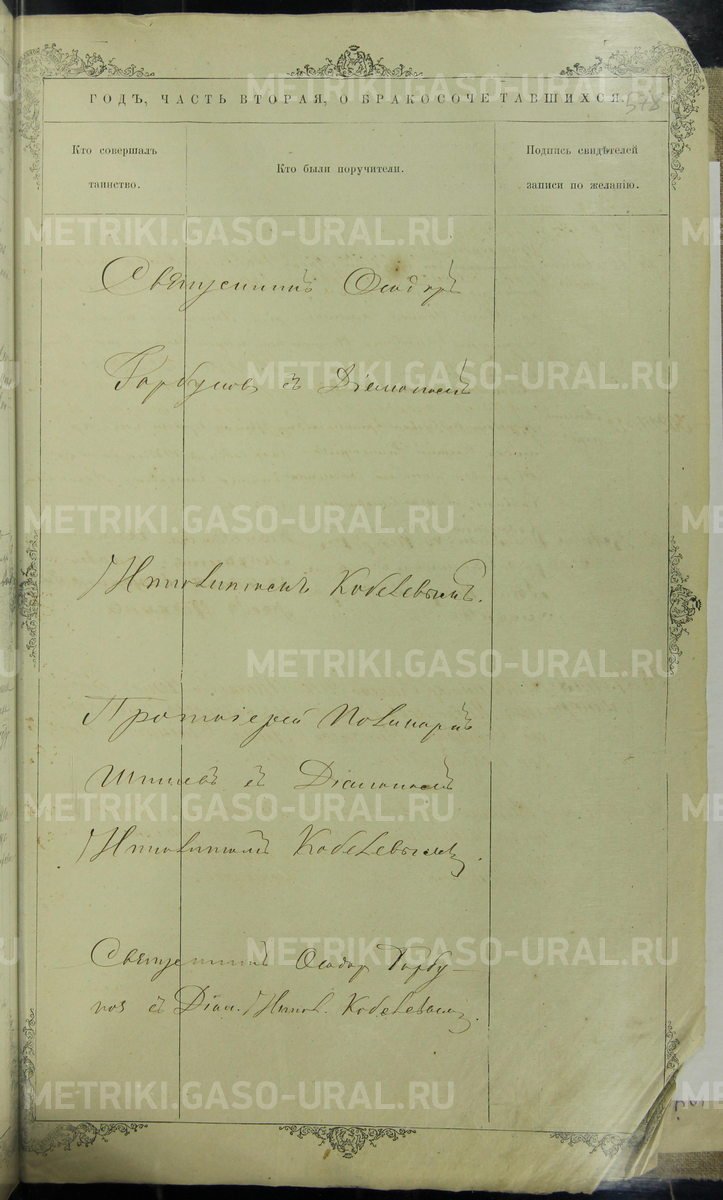 ГОДЪ, ЧАСТЬ ВТОРАЯ, О БРАКОСОЧЕТАВШИХСЯ.
578
Кто совершалъ
таинство.
Кто были поручители.
Подпись свидѣтелей
записи по желанію.
Священникъ Ѳеодоръ
Горбуновъ съ Діакономъ
Ипполитомъ Кобелевымъ.
Протоіерей
съ Діакономъ
Ипполитомъ Кобелевымъ.
Священникъ Ѳеодор Горбу-
нов съ Діак. Иппол. Кобелевымъ.
METRIKI.GASO-URAL.RU